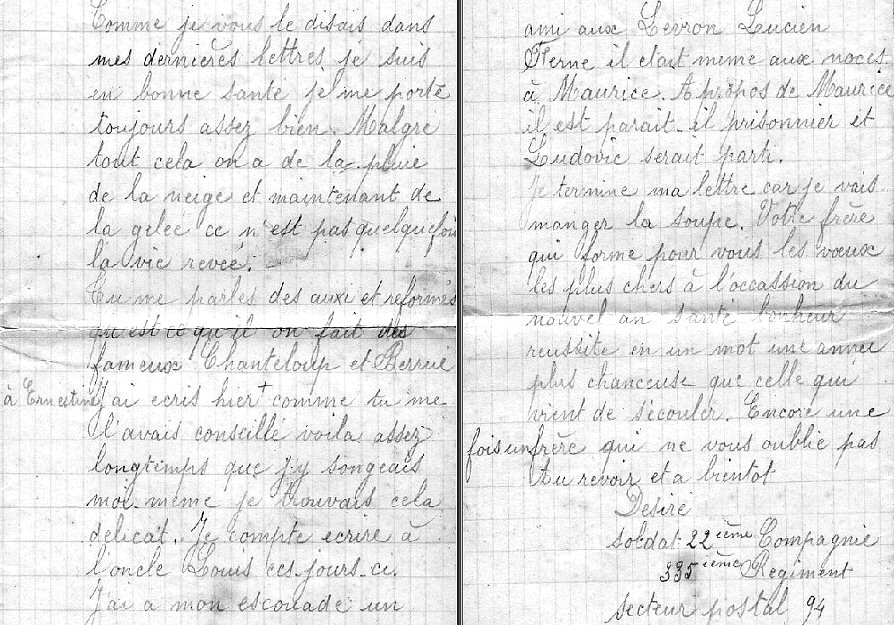 Comme je vous le disais dans
mes dernières lettres je suis
en bonne santé je me porte
toujours assez bien. Malgré
tout cela on a de la pluie
de la neige et maintenant de
la gelee ce n'est pas quelquefois
la vie revée.
Tu me parles des auxi et reformés
qu'est ce qu'il on fait des
fameux Chanteloup et
J'ai ecris hier + comme tu me
à Ernestine
l'avais conseillé voila assez
longtemps que j'y songeais
moi-même je trouvais cela
délicat. Je compte ecrire à
l'oncle Louis ces-jours-ci.
J'ai a mon escouade un
ami aux Levron Lucien
Ferne il était meme aux noces
à Maurice. A propos de Maurice
il est parait-il prisonnier et
Ludovic serait parti.
Je termine ma lettre car je vais
manger la soupe. Votre frère
qui forme pour vous les vœux
les plus chers à l'occassion du
nouvel an santé bonheur
reussite en un mot une année
plus chanceuse que celle qui
vient de s'écouler. Encore une
fois un frère qui ne vous oublie pas
Au revoir et a bientot
Desiré
soldat 22ième Compagnie
335ième Regiment
secteur postal 94